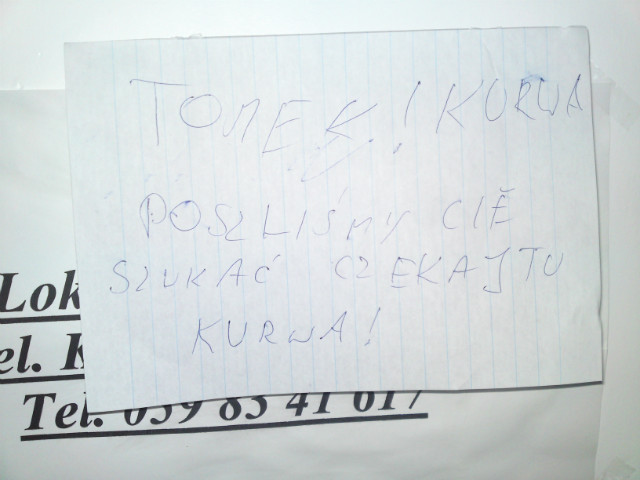 TOMEK! KURWA
POSZLIŚMY CIĘ
SZUKAĆ CZEKAJ TU
KURWA!
Lok
el. K
Tel. 059 83 41 617